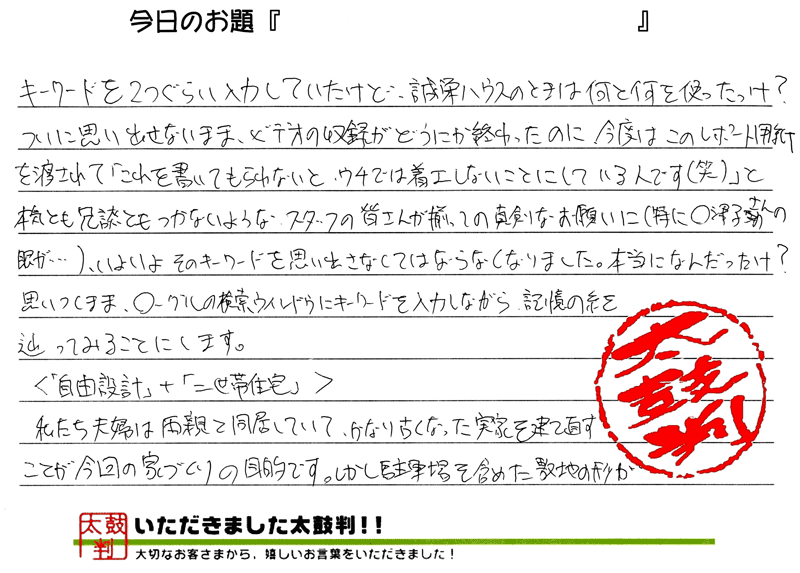 今日のお題『　　　　　』
キーワードを2つぐらい入力していたけど、誠栄ハウスのときは何と何を使ったっけ?
ついに思い出せないまま、ビデオの収録がどうにか終わったのに今度はこのレポート用紙
を渡されて「これを書いてもらわないと、ウチでは着工しないことにしているんです(笑)」と
本気とも冗談ともつかないような、スタッフの皆さんが揃っての真剣なお願いに(特に〇澤子さんの
眼が…)、いよいよそのキーワードを思い出さなくてはならなくなりました。本当になんだったっけ?
思いつくまま、〇ーグルの検索ウィンドウにキーワードを入力しながら記憶の糸を
辿ってみることにします。
<「自由設計」+「二世帯住宅」>
私たち夫婦は両親と同居していて、かなり古くなった実家を建て直す
ことが今回の家づくりの目的です。しかし駐車場を含めた敷地の形が
太鼓判
太鼓判
いただきました太鼓判!!
大切なお客さまから、嬉しいお言葉をいただきました!